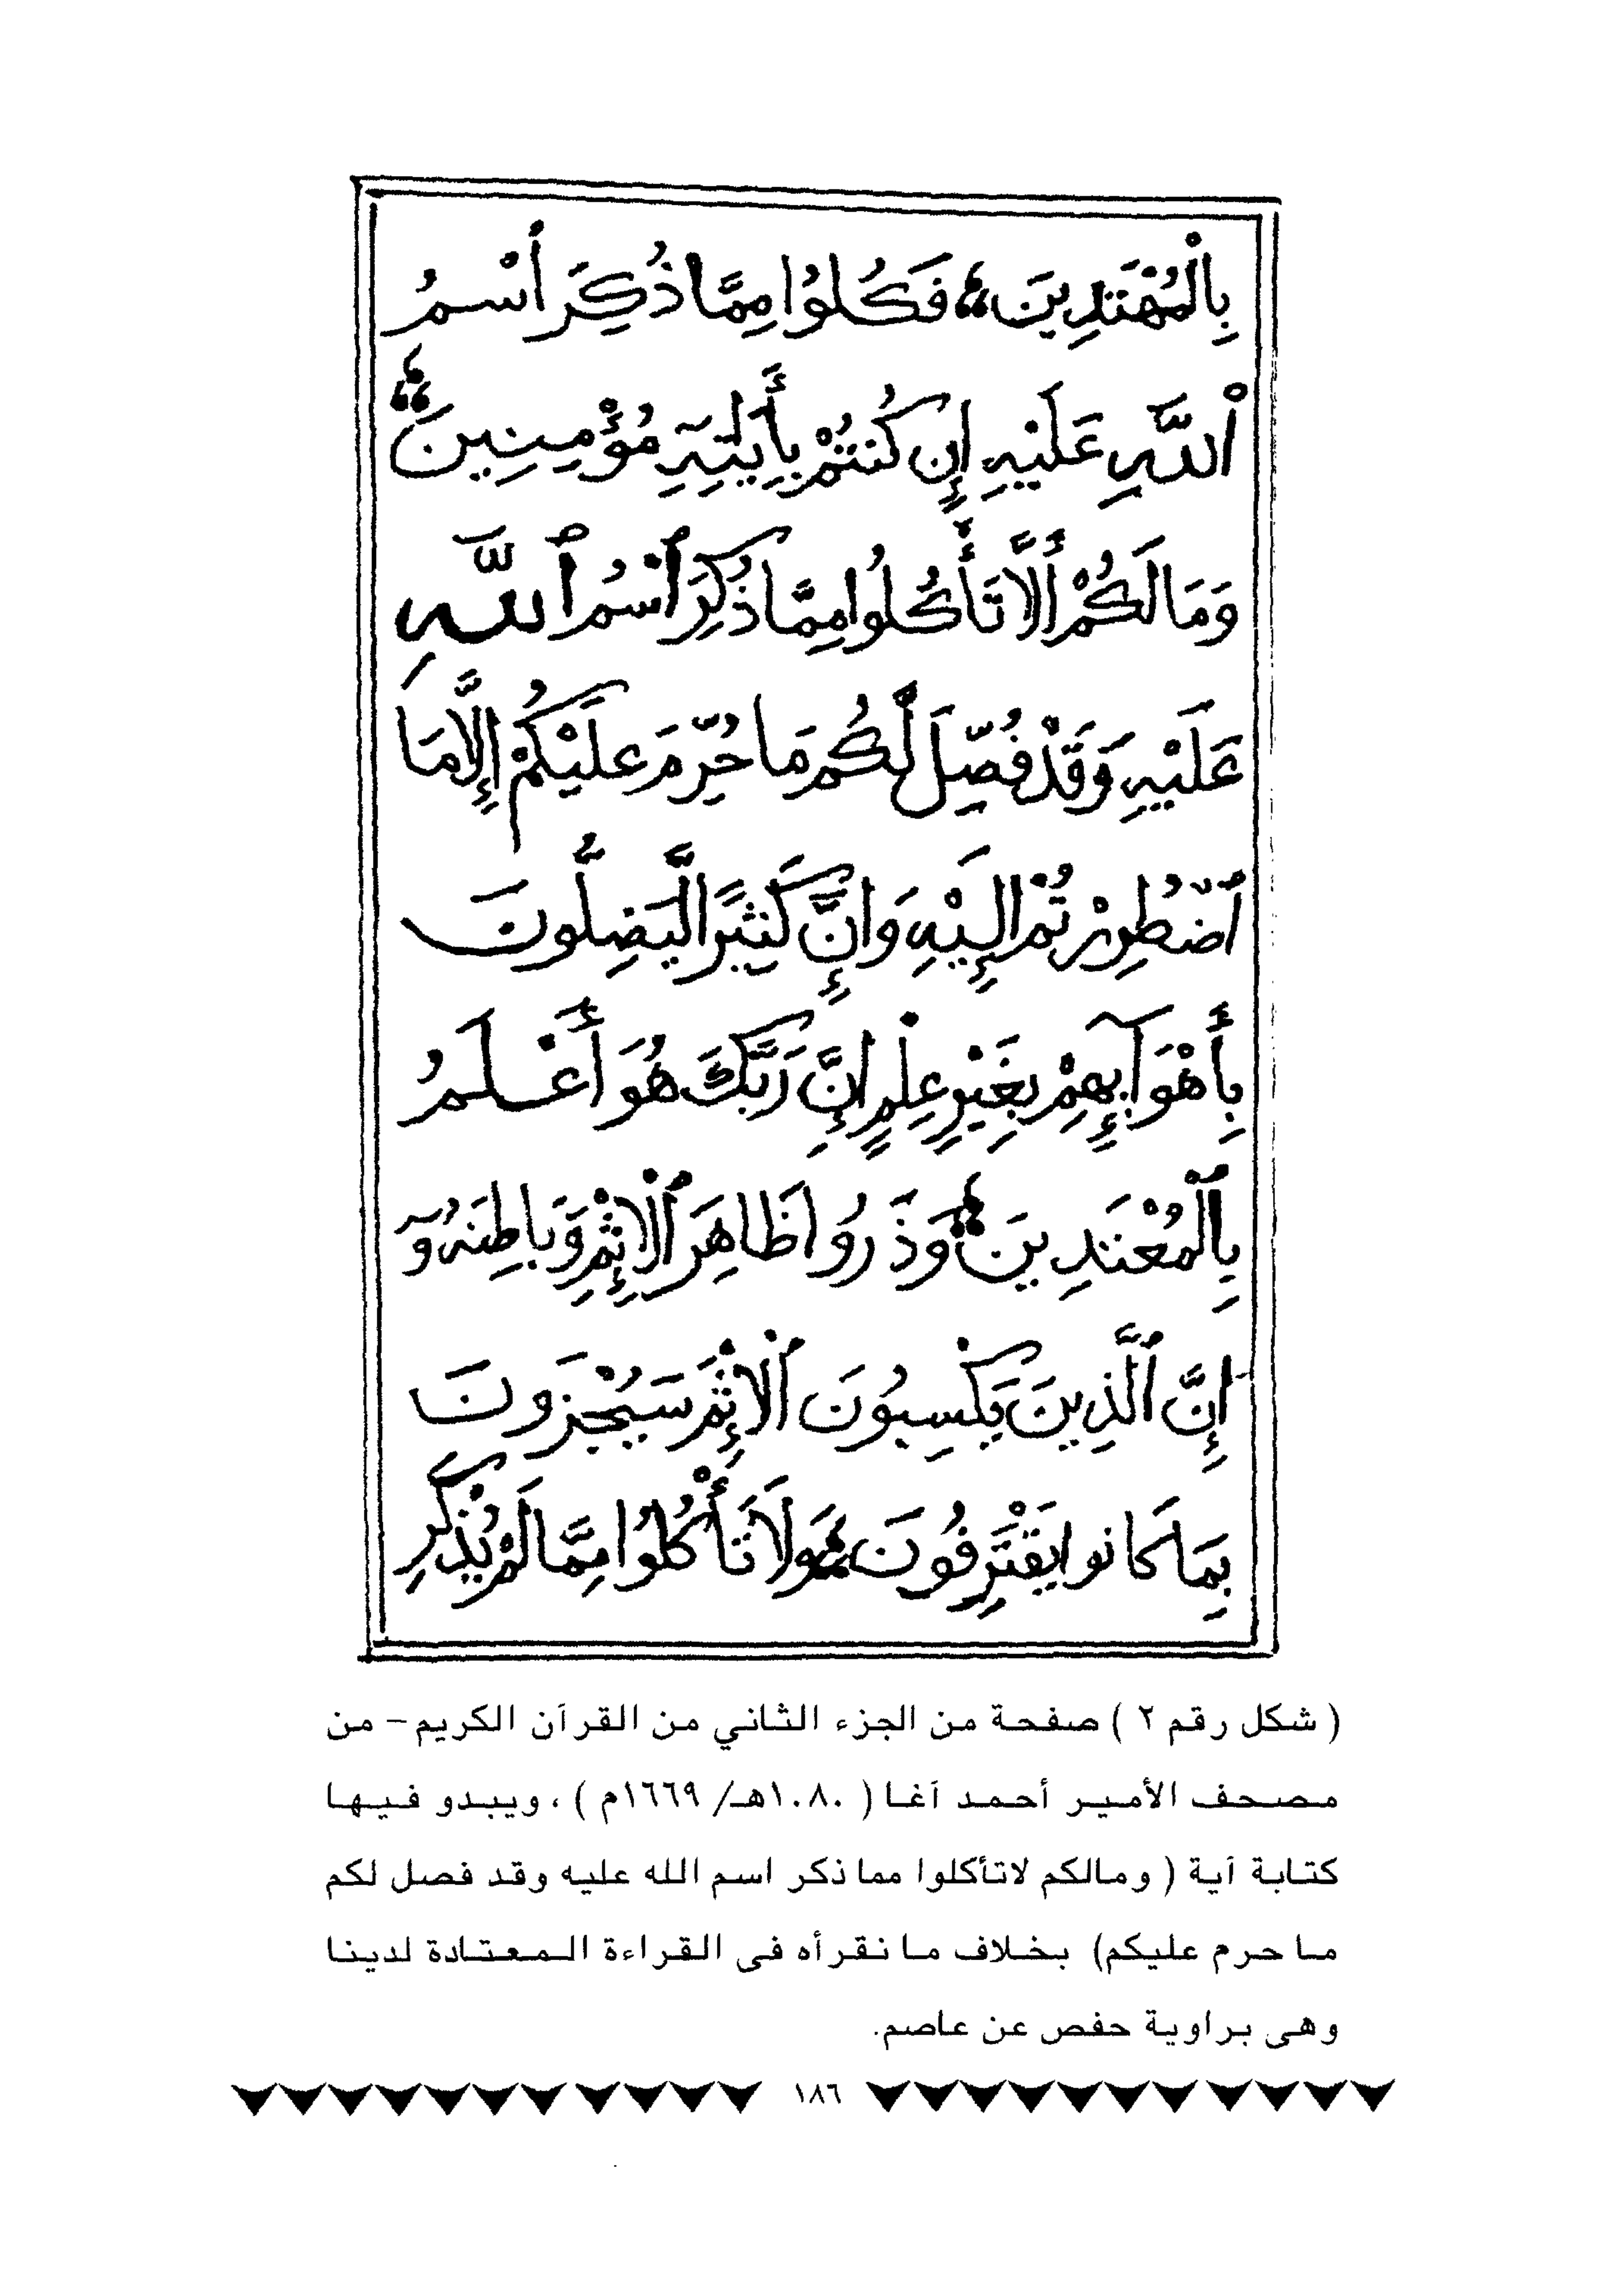 بِالْمُهْتَدِينَ فَكُلُوا مِمَّا ذُكِرَ اسْمُ
اللَّهِ عَلَيْهِ إِن كُنتُمْ بِأَيَٰتِهِ مُؤْمِنِينَ
وَمَا لَكُمْ أَلَّا تَأْكُلُوا مِمَّا ذُكِرَ ٱسْمُ ٱللَّهِ
عَلَيْهِ وَقَدْ فُصِّلَ لَكُم مَا حُرِّمَ عَلَيْكُمْ إِلَّا مَا
ٱضْطُرِرْتُمْ إِلَيْهِ وَإِنَّ كَثِيرًا لَّيَضِلُّونَ
بِأَهْوَآئِهِمْ بِغَيْرِ عِلْمٍ إِنَّ رَبَّكَ هُوَ أَعْلَمُ
بِٱلْمُعْتَدِينَ وَذَرُوا ظَاهِرَ ٱلْإِثْمِ وَبَاطِنَهُ وٓ
إِنَّ ٱلَّذِينَ يَكْسِبُونَ ٱلْإِثْمَ سَيُجْزَونَ
بِمَا كَانوا يَقْتَرِفُونَ وَلَا تَأْكُلُوا مِمَّا لَمْ يُذْكَرِ
( شكل رقم ٢ ) صفحة من الجزء الثاني من القرآن الكريم- من
مصحف الأمير أحمد آغا ( ١٠٨٠هـ/ ١٦٦٩م ) ، ويبدو فيها
كتابة آية ( ومالكم لاتأكلوا مما ذكر اسم الله عليه وقد فصل لكم
ما حرم عليكم) بخلاف ما نقرأه فى القراءة المعتادة لدينا
وهى براوية حفص عن عاصم.
١٨٦